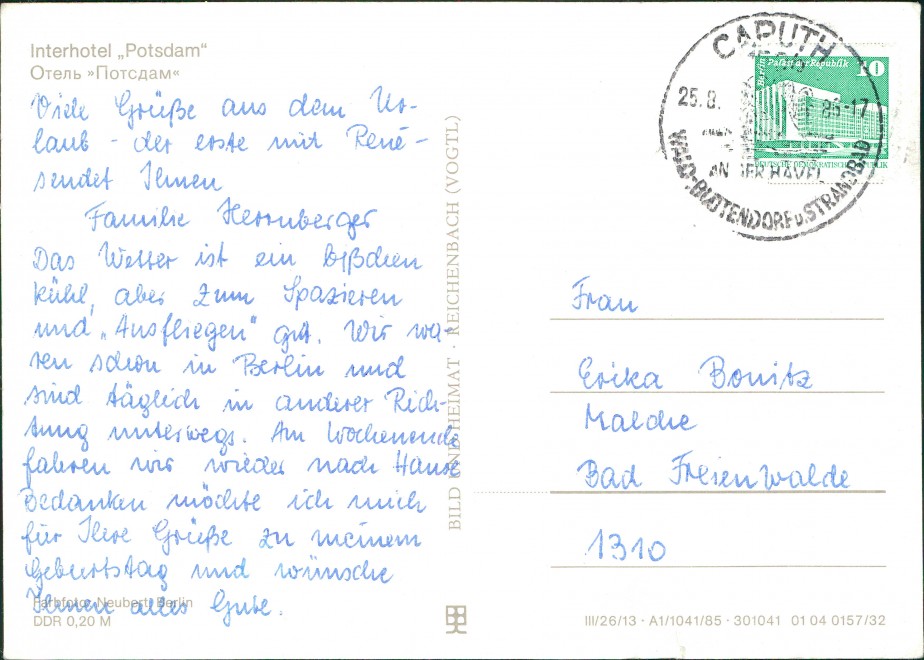 Interhotel „Potsdam“
Отель »Потсдам«
Viele Grüße aus dem Ur-
laub - der erste mit René -
sendet Ihnen
Familie Herrnberger
Das Wetter ist ein bißchen
kühl, aber zum Spazieren
und „Ausfliegen“ gut. Wir wa-
ren schon in Berlin und
sind täglich in anderer Rich-
tung unterwegs. Am Wochenende
fahren wir wieder nach Hause
Bedanken möchte ich mich
für Ihre Grüße zu meinem
Geburtstag und wünsche
Ihnen alles Gute.
Farbfoto: Neubert, Berlin
DDR 0,20 M
BILD UND HEIMAT · REICHENBACH (VOGTL)
CAPUTH
25.8. 86-17
AN DER HAVEL
WALD-BLÜTENDORF u. STRANDBAD
Berlin Palast der Republik 10
DEUTSCHE DEMOKRATISCHE REPUBLIK
Frau
Erika Bonitz
Malche
Bad Freienwalde
1310
III/26/13 · A1/1041/85 · 301041 01 04 0157/32